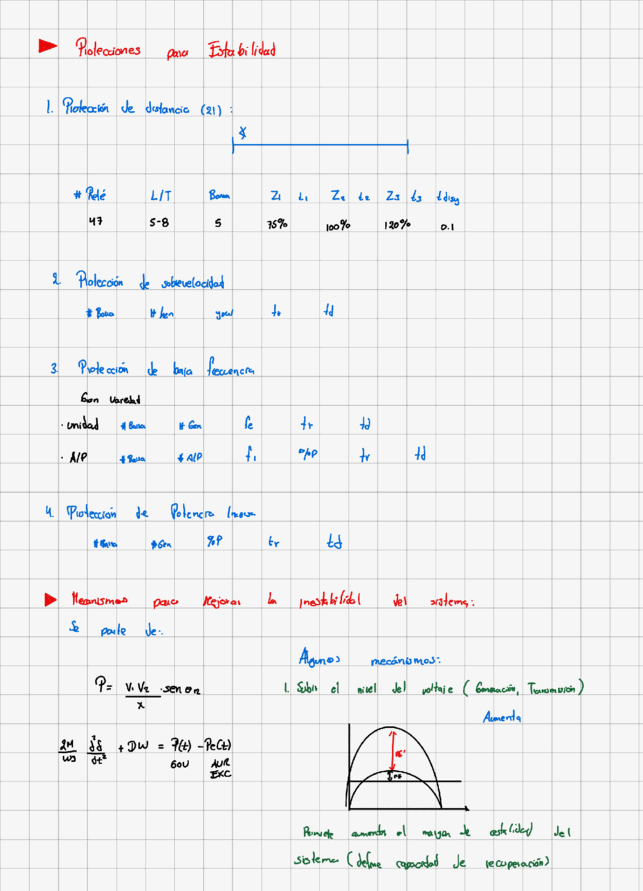 Protecciones para Estabilidad
1. Protección de distancia (21) :
# Relé L/T Barra Z1 t1 Z2 t2 Z3 t3 tdisy
47 5-8 5 75% 100% 120% 0.1
2. Protección de sobrevelocidad
# Barra # Gen tr td
3. Protección de baja frecuencia
Gen
· unidad # Barra # Gen fc tr td
· A/P # Barra # A/P f1 %P tr td
4. Protección de Potencia Inversa
# Barra # Gen %P tr td
Mecanismos para Mejorar la inestabilidad del sistema:
Se parte de:
Algunos mecánismos:
P = V1 V2 / x · sen θ12
1. Subir el nivel del voltaje ( Generación, Transmisión)
Aumenta
2H/ws d²δ/dt² + DW = P(t) - Pe(t)
GOV AVR
EXC
Permite aumentar el margen de estabilidad del
sistema ( define capacidad de recuperación)